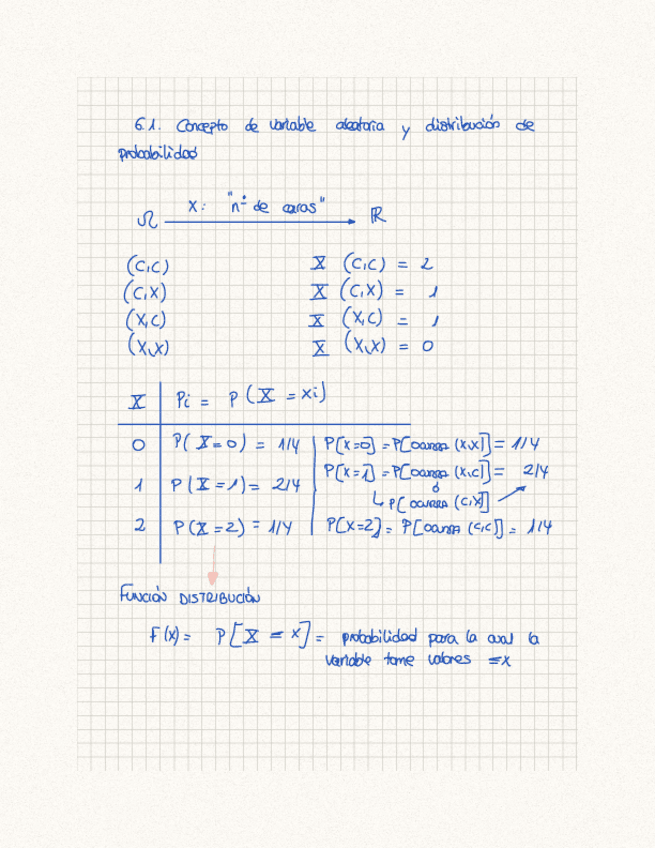 6.1. Concepto de variable aleatoria y distribución de
probabilidad
Ω X: "nº de caras" ℝ
(C,C) X (C,C) = 2
(C,X) X (C,X) = 1
(X,C) X (X,C) = 1
(X,X) X (X,X) = 0
X Pi = P (X = xi)
0 P(X=0) = 1/4 P[X=0] = P[ocurra (X,X)] = 1/4
1 P(X=1) = 2/4 P[X=1] = P[ocurra (X,C)] = 2/4
ó
↳ P[ocurra (C,X)]
2 P(X=2) = 1/4 P[X=2] = P[ocurra (C,C)] = 1/4
FUNCIÓN DISTRIBUCIÓN
F(x) = P[X = x] = probabilidad para la cual la
variable tome valores =x